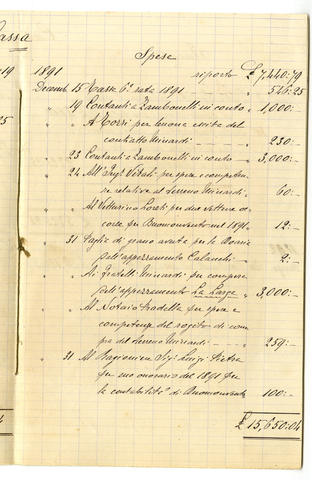 assa
Spese
19 1891 riporto £ 7,440:79
Decemb. 15 Tasse 6a rata 1891 " 546:25
" 19 Contanti a Zambonelli in conto " 1,000:-
" A Torri per buona uscita del
contratto Minardi " 230:-
" 23 Contanti a Zambonelli in conto " 3,000:-
" 24 All' Ingr Vitali per spese e competen
ze relative al terreno Minardi " 60:-
" Al Vetturino Loreti per due vetture oc
corse per Buonconvento nel 1891 " 12:-
" 31 Paglia di grano avuta per le
dall'appezzamento Calanchi " 2:-
" Ai fratelli Minardi per compera
dell'appezzamento La Larga " 3,000:-
" Al Notaio Stradella per spese e
competenze del rogito di com
pra del terreno Minardi " 259:-
" 31 Al Ragioniere Sigr Luigi Pietra
per suo onorario del 1891 per
la contabilità di Buonconvento " 100:-
£ 15,650:04